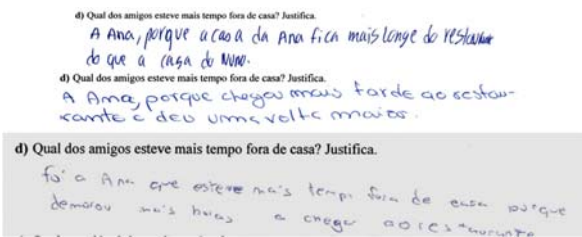 d) Qual dos amigos esteve mais tempo fora de casa? Justifica.
A Ana, porque a casa da Ana fica mais longe do restaurante
do que a casa do Nuno.
d) Qual dos amigos esteve mais tempo fora de casa? Justifica.
A Ana, porque chegou mais tarde ao restau-
rante e deu uma volta maior.
d) Qual dos amigos esteve mais tempo fora de casa? Justifica.
foi a Ana que esteve mais tempo fora de casa porque
demorou mais horas a chegar ao restaurante